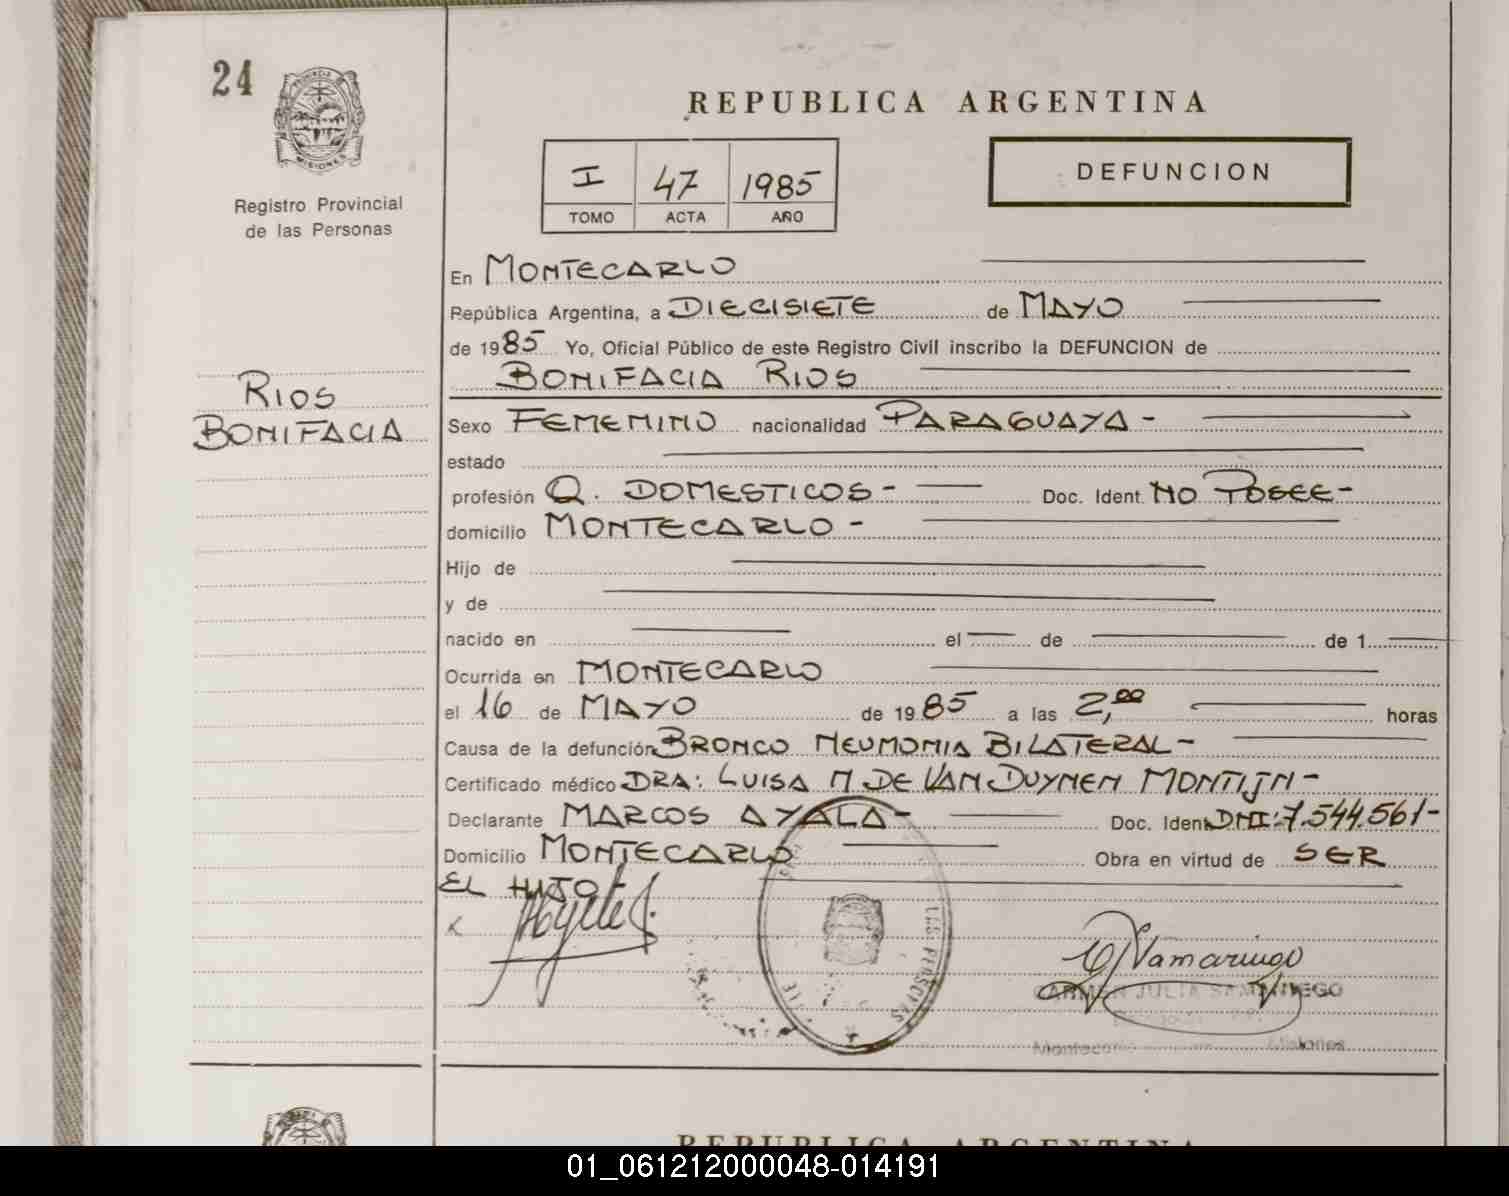 24
PROVINCIA DE
MISIONES
Registro Provincial
de las Personas
RIOS
BONIFACIA
REPUBLICA ARGENTINA
I 47 1985
TOMO ACTA AÑO
DEFUNCION
En MONTECARLO
República Argentina, a DIECISIETE de MAYO
de 1985 Yo, Oficial Público de este Registro Civil inscribo la DEFUNCION de
BONIFACIA RIOS
Sexo FEMENINO nacionalidad PARAGUAYA -
estado
profesión Q. DOMESTICOS - Doc. Ident. NO POSEE -
domicilio MONTECARLO -
Hijo de
y de
nacido en el de de 1
Ocurrida en MONTECARLO
el 16 de MAYO de 1985 a las 2,00 horas
Causa de la defunción BRONCO NEUMONIA BILATERAL -
Certificado médico DRA: LUISA M DE VAN DUYNEN MONTIJN -
Declarante MARCOS AYALA - Doc. Ident DNI: 7.544.561 -
Domicilio MONTECARLO Obra en virtud de SER
EL HIJO -
LAS PERSONAS
CARMEN JULIA SAMANIEGO
Misiones
REPUBLICA ARGENTINA
01_061212000048-014191